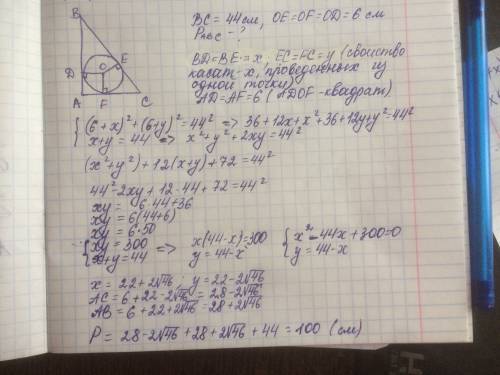 B
O
E
D
A
F
C
BC = 44 см, OE=OF=OD=6 см
P_ABC - ?
BD=BE=x, EC=FC=y (свойство
касат-х, проведенных из
одной точки)
AD=AF=6 (ADOF-квадрат)
{ (6+x)²+(6+y)²=44² => 36+12x+x²+36+12y+y²=44²
x+y=44 => x²+y²+2xy=44²
(x²+y²)+12(x+y)+72=44²
44²-2xy+12·44+72=44²
xy = 6·44+36
xy = 6(44+6)
xy = 6·50
{ xy = 300 => x(44-x)=300 { x²-44x+300=0
x+y=44 y=44-x y=44-x
x = 22+2√46; y=22-2√46
AC=6+22-2√46 = 28-2√46
AB=6+22+2√46=28+2√46
P = 28-2√46+28+2√46+44=100 (см)